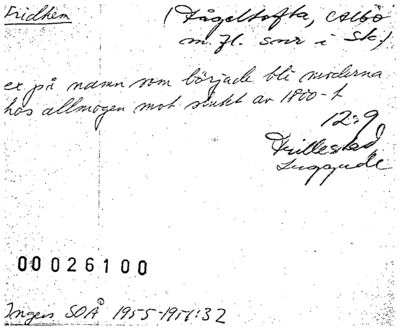 Fridhem
(Fågeltofta, Albo
m.fl. snr i Sk.)
ex på namn som började bli moderna
hos allmogen mot slutet av 1800-t
12:9
Frillestad
Luggude
00026100
Ingers SOÅ 1955-1956:32